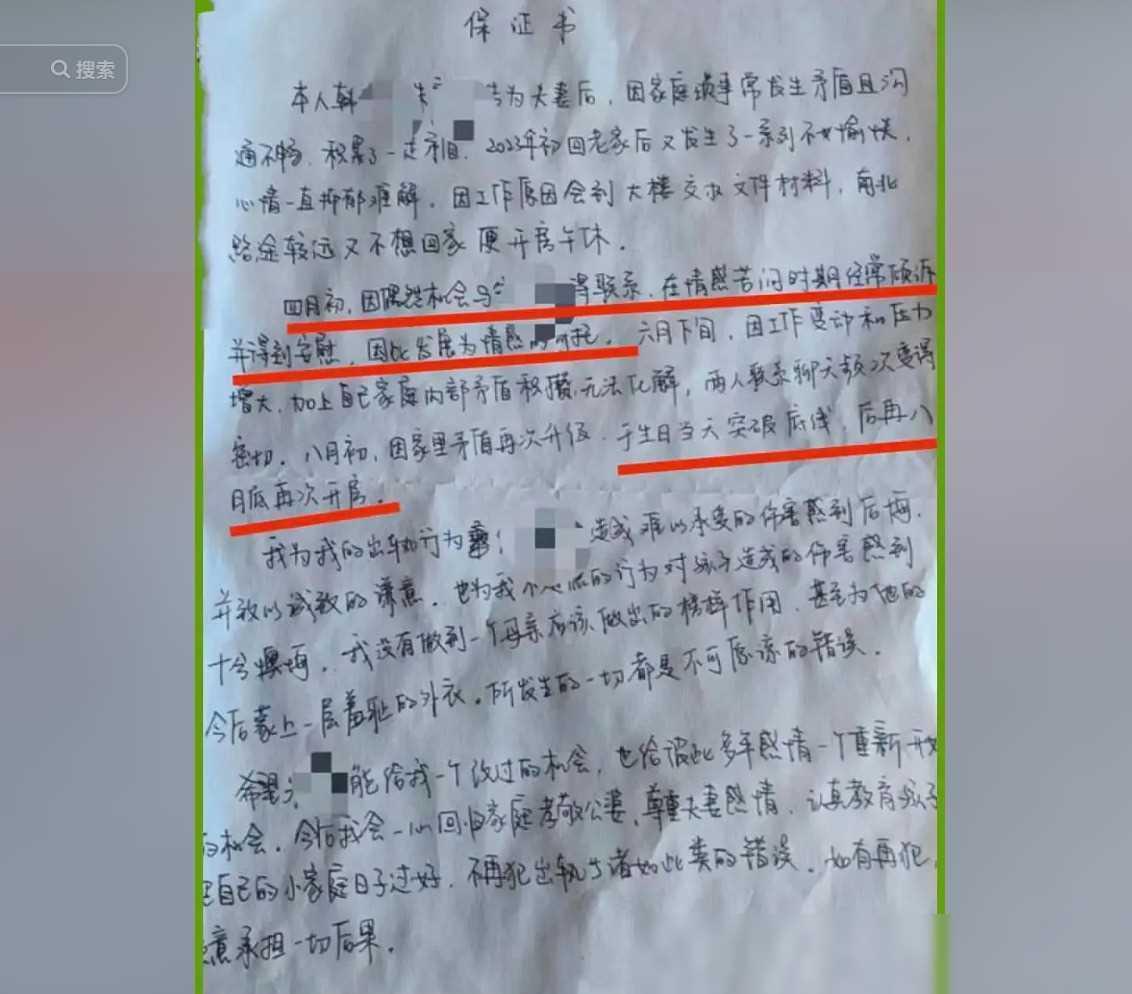 搜索
保证书
本人韩 为夫妻后，因家庭琐事常发生矛盾且沟
通不畅，积累了一定矛盾。2023年初回老家后又发生了一系列不愉快，
心情一直抑郁难解，因工作原因会到大楼交求文件材料，南北
路途较远又不想回家便开房午休。
四月初，因偶然机会与 得联系，在情感苦闷时期经常倾诉
并得到安慰，因此发展为情感的寄托。六月下旬，因工作变动和压力
增大，加上自己家庭内部矛盾积攒，无法化解，两人联系聊天频次变得
密切。八月初，因家里矛盾再次升级，于生日当天突破底线，后再八
月底再次开房。
我为我的出轨行为 造成难以承受的伤害感到后悔，
并致以诚致的谦意，也为我不 的行为对孩子造成的伤害感到
十分懊悔，我没有做到一个母亲应该做出的榜样作用，甚至为他的
今后蒙上一层羞耻的外衣。所发生的一切都是不可原谅的错误。
希望 能给我一个改过的机会，也给彼此多年感情一个重新开始
的机会，今后我会一心回归家庭孝敬公婆，尊重夫妻感情，认真教育孩子
把自己的小家庭日子过好，不再犯出轨 诸如此类的错误。如有再犯，
愿意承担一切后果。